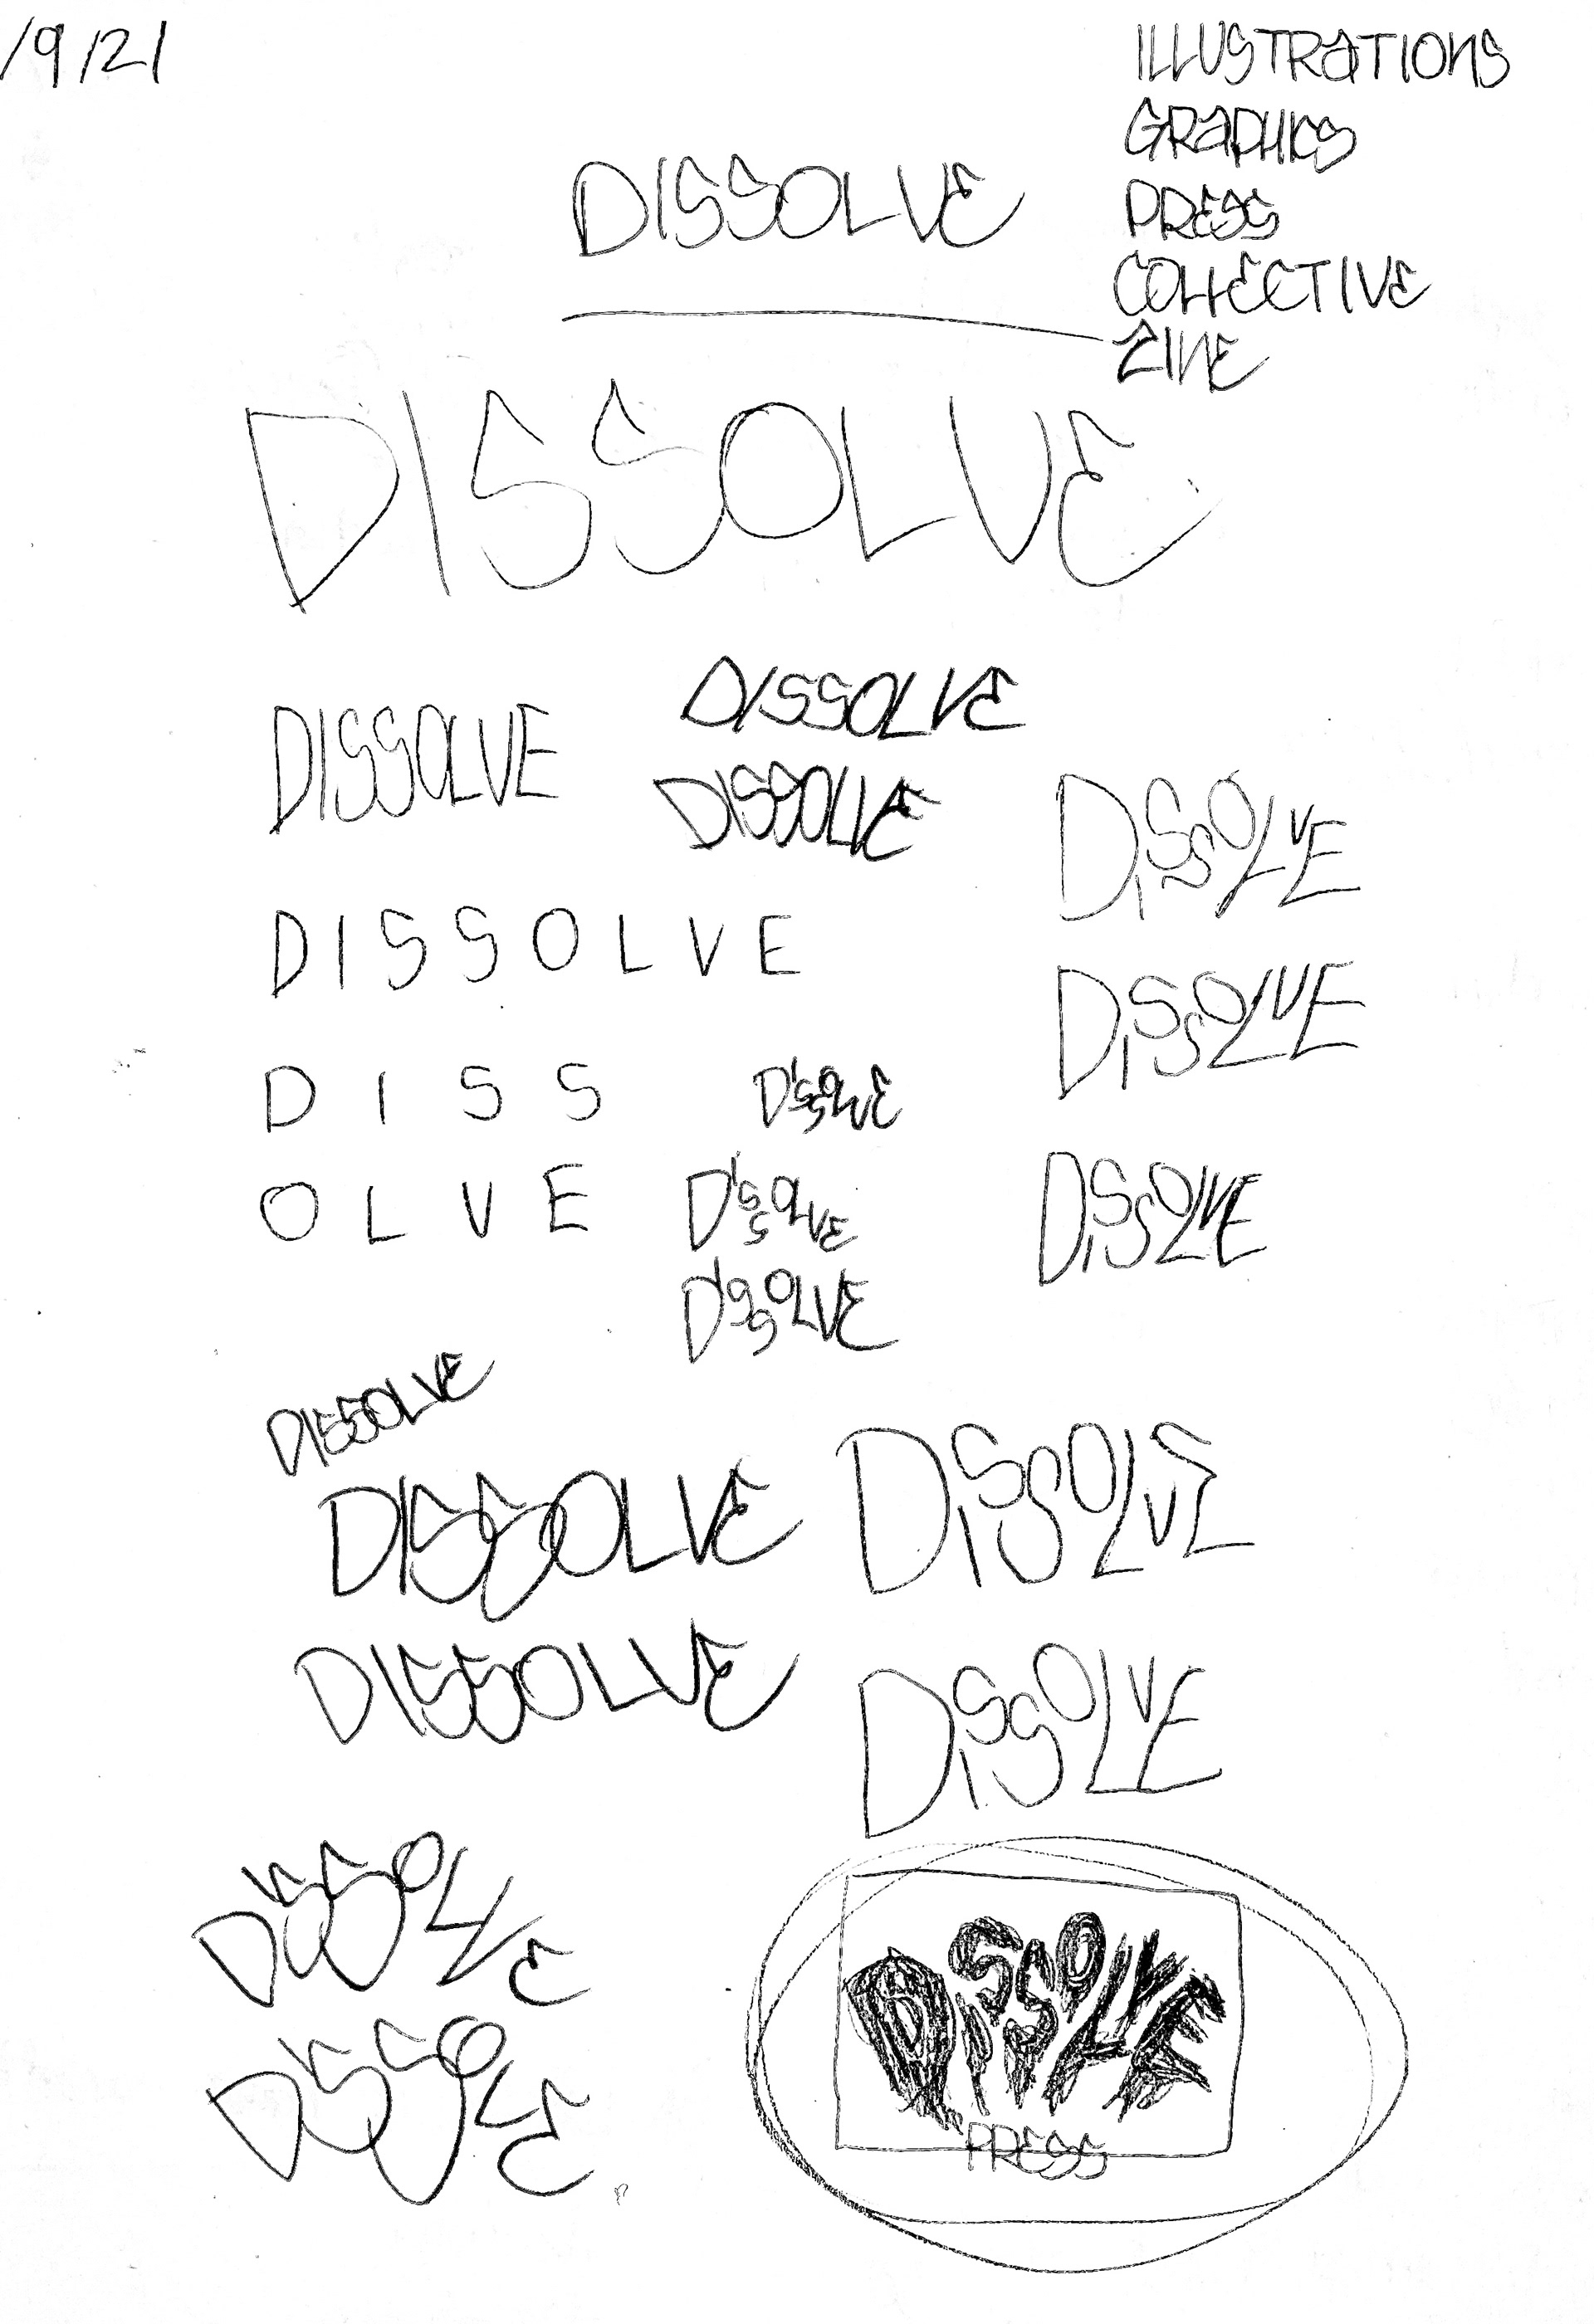 /9/21
ILLUSTRATIONS
GRAPHICS
PRESS
COLLECTIVE
ZINE
DISSOLVE
DISSOLVE
DISSOLVE
DISSOLVE
DISSOLVE
DISSOLVE
DISSOLVE
DISSOLVE
DISS
OLVE
DISSOLVE
DISSOLVE
DISSOLVE
DISSOLVE
DISSOLVE
DISSOLVE
DISSOLVE
DISSOLVE
DISSOLVE
DISSOLVE
DISSOLVE
DISSOLVE
PRESS